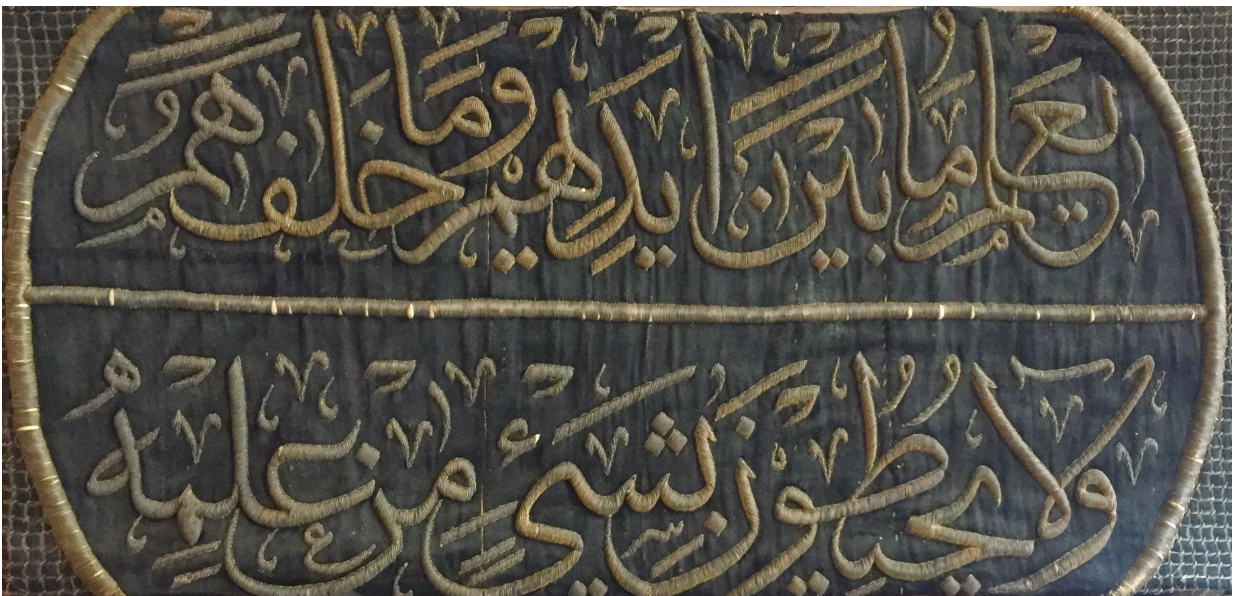 يَعْلَمُ مَا بَيْنَ أَيْدِيهِمْ وَمَا خَلْفَهُمْ
وَلَا يُحِيطُونَ بِشَيْءٍ مِنْ عِلْمِهِ